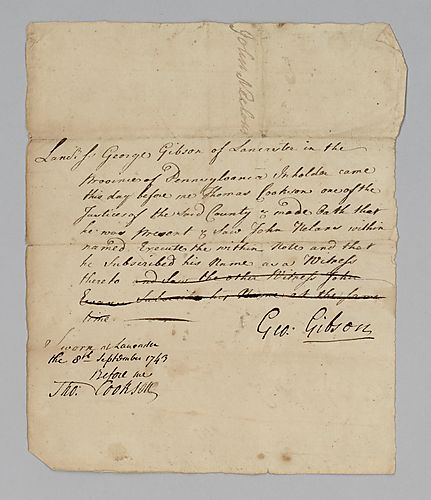 Lanc.r ss George Gibson of Lancaster in the
Province of Pennsylvania Inholder came
this day before me Thomas Cookson one of the
Justices of the said County & made Oath that
he was Present & Saw John Nelans within
named Execute the within Note and that
he Subscribed his Name as a Witness
thereto and saw the other Witness John
Subscribe his Name at the same
time
Geo. Gibson
Sworn at Lancaster
the 8th September 1743
Before me
Tho: Cookson